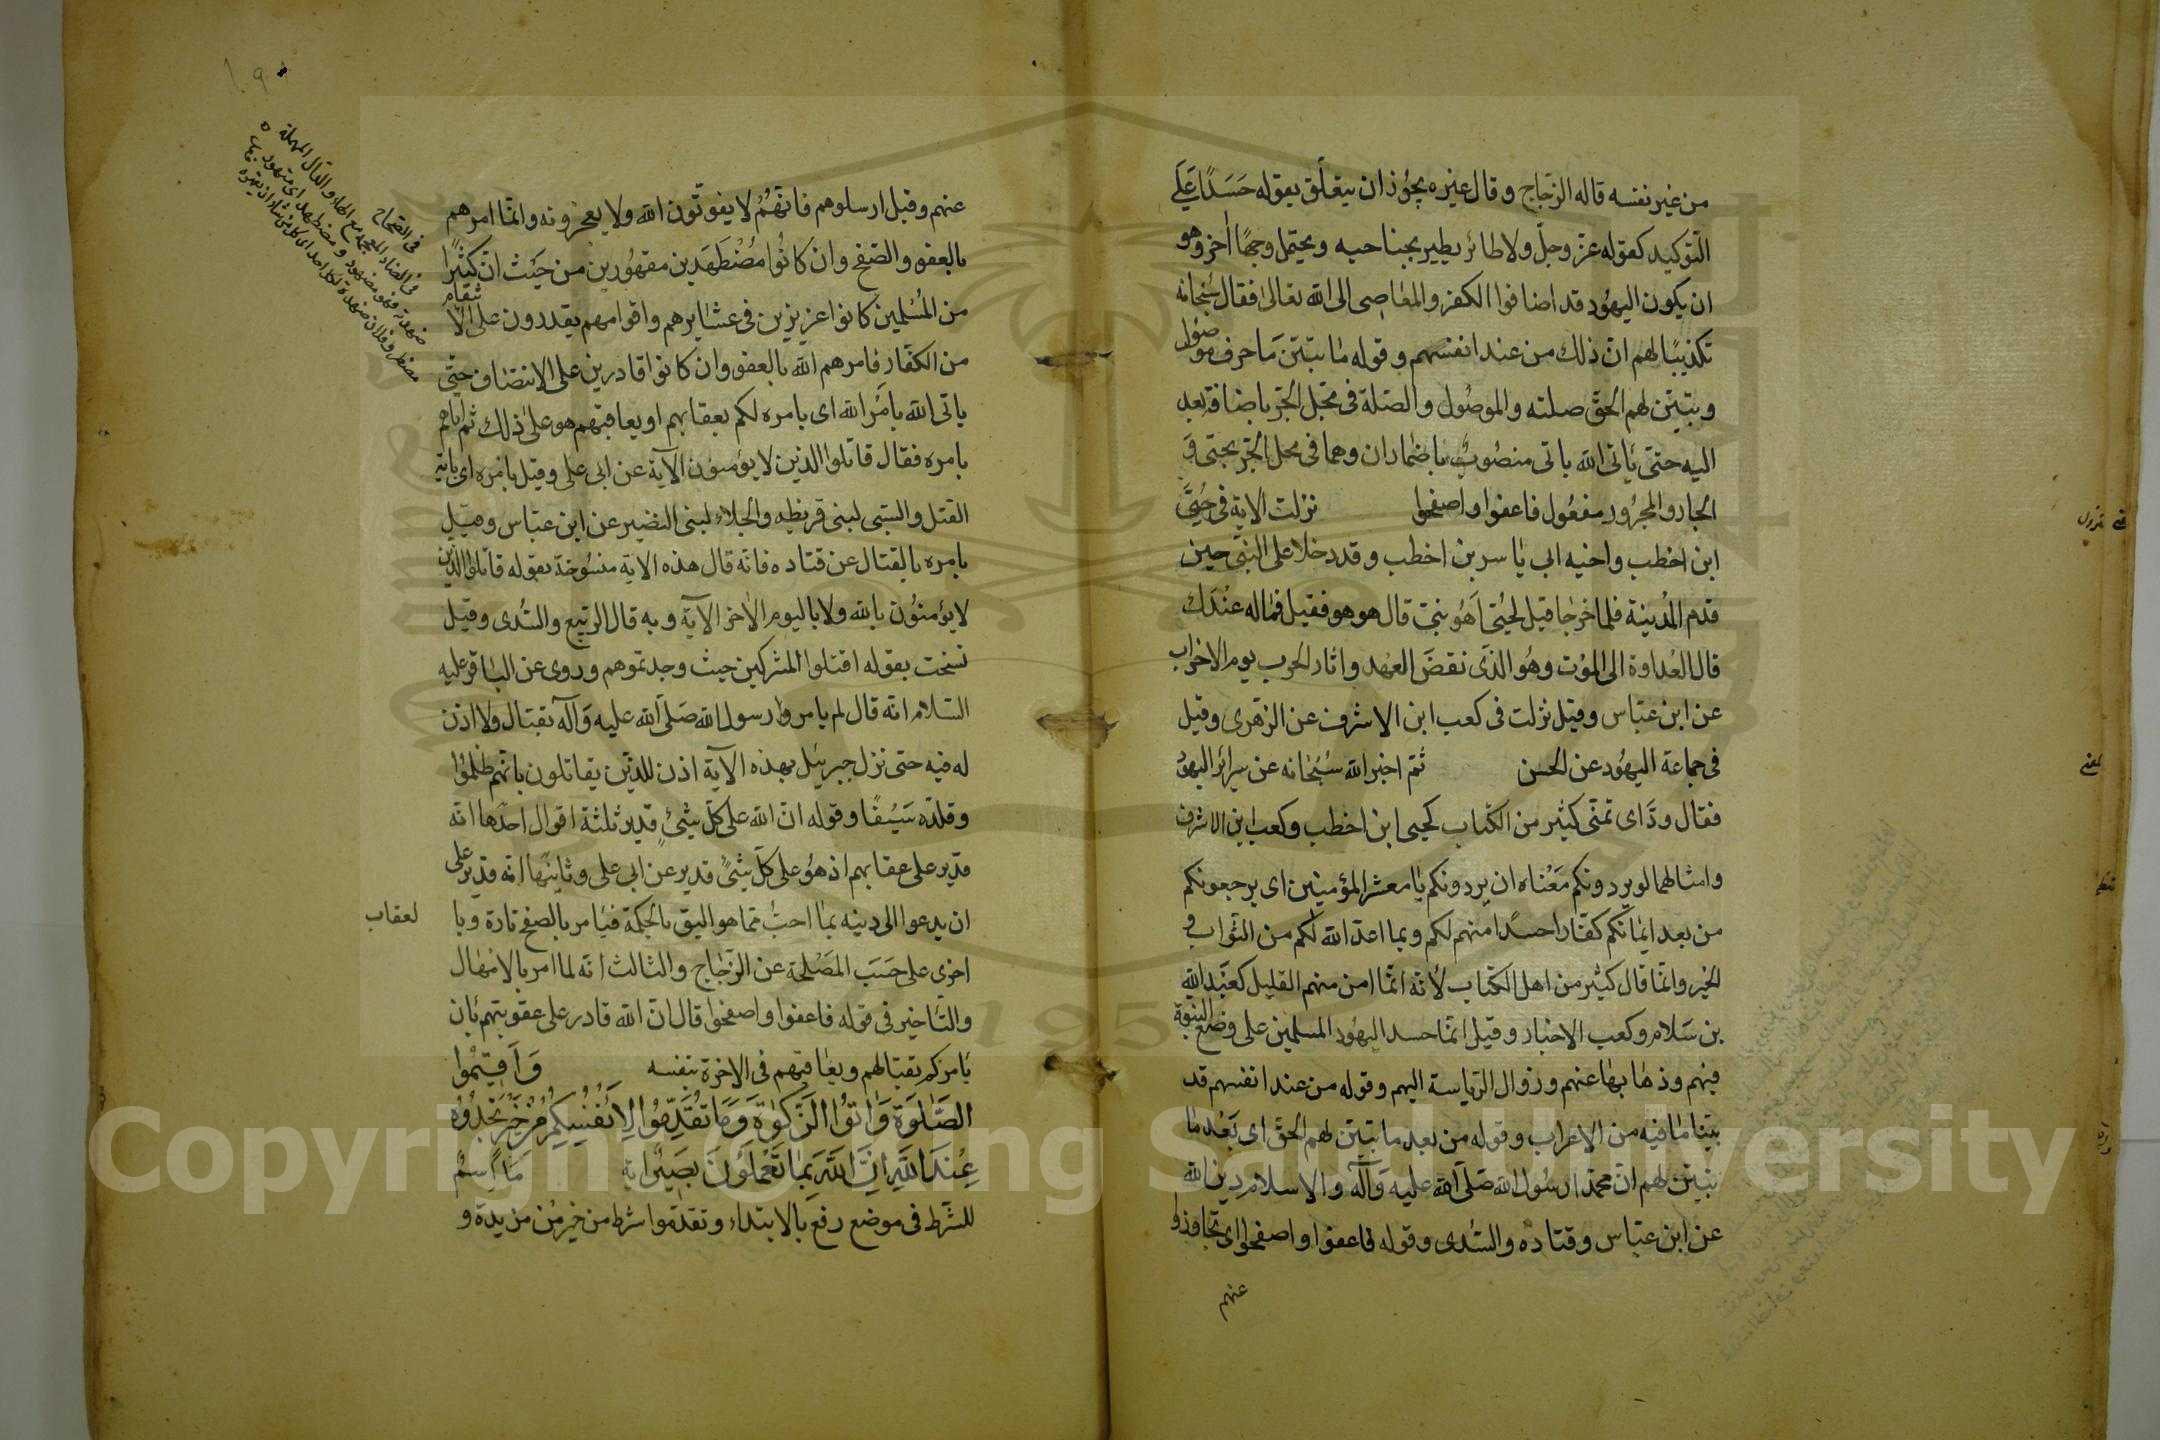 من غير نفسه قاله الزجاج وقال غيره يجوز ان يتعلق بقوله حَسَدًا على
التوكيد كقوله عز وجل ولا طائر يطير بجناحيه ويحتمل وجهًا اخر وهو
ان يكون اليهود قد اضافوا الكفر والمعاصى الى الله تعالى فقال سبحانه
تكذيبًا لهم ان ذلك من عند انفسهم وقوله ما تبيّن مَا حرف موصول
وتبيّن لهم الحق صلته والموصول والصّلة فى محل الجر باضافة بعد
اليه حتى ياتى الله ياتى منصوب باضمار ان وهما فى محل الجر بحتى و
الجار والمجرور مفعول فاعفوا واصفحوا نزلت الاية فى حُيَىّ
ابن اخطب واخيه ابى ياسر بن اخطب وقد دخلا على النبى حين
قدم المدينة فلما خرجا قيل لحُيى اَهُو نبى قال هو هو فقيل فماله عندك
قال العداوة الى الموت وهُو الذى نقضَ العهد واثار الحرب يوم الاحزاب
عن ابن عباس وقيل نزلت فى كعب ابن الاشرف عن الزهرى وقيل
فى جماعة اليهود عن الحسن ثم اخبر الله سُبْحَانه عن سرائر اليهود
فقال ودّ اى تمنّى كثير من الكتاب كحيى ابن اخطب وكعب ابن الاشرف
وامثالهما لو يردونكم مَعْناه ان يردونكم يا معشر المؤمنين اى يرجعونكم
من بعد ايمانكم كفارا حسدا منهم لكم وبما اعد الله لكم من الثواب و
الخير وانما قال كثير من اهل الكتاب لأنه انما امن منهم القليل كعبد الله
بن سَلام وكعب الاحبار وقيل انما حسد اليهود المسلمين على وضع النبوة
فيهم وذهابها عنهم وزوال الرياسة اليهم وقوله من عند انفسهم قد
بيّنا ما فيه من الاعراب وقوله من بعد ما تبيّن لهم الحق اى بَعْد ما
تبيّن لهم ان محمدا رسُول الله صَلى الله عليه وَآله والاسلام دين الله
عن ابن عباس وقتاده والسّدى وقوله فاعفوا واصفحوا اى تجاوزوا
عنهم
عنهم وقيل ارسلوهم فانهُمُ لا يفوتون الله ولا يعجزونه وانما امرهم
بالعفو والصّفح وان كانُوا مُضْطَهَدين مقهُورين من حَيْث ان كثيرًا
من المُسْلمين كانوا عزيزين فى عشايرهم واقوامهم يقدرون على الانتقام
من الكفار فامرهم الله بالعفو وان كانوا قادرين على الانتصاف حتى
ياتى الله بامره الله اى بامره لكم بعقابهم او يعاقبهم هو على ذلك ثم اتاهم
بامره فقال قاتلوا الذين لا يؤمنون الآية عن ابى على وقيل بامره اى باية
القتل والسّبى لبنى قريظه والجلاء لبنى النضير عن ابن عباس وقيل
بامره بالقتال عن قتاده فانه قال هذه الاية منسوخة بقوله قاتلوا الذين
لا يؤمنُون بالله ولا باليوم الاخر الآية وبه قال الربيع والسّدى وقيل
نسخت بقوله اقتلوا المشركين حيث وجدتموهم وروى عن الباقر عليه
السّلام انه قال لم يامر رسول الله صَلى الله عليه وَآله بقتال ولا اذن
له فيه حتى نزل جبرئيل بهذه الآية اذن للذين يقاتلون بانهم ظلموا
وقلّده سَيْفًا وقوله ان الله على كل شئ قدير ثلثة اقوال احدها انه
قدير على عقابهم اذ هو على كل شئ قدير عن ابى على وثانيها انه قدير على
ان يدعوا الى دينه بما احبّ مما هو اليق بالحكمة فيامر بالصفح تارة وبا
لعقاب
اخرى على حَسَب المَصْلحة عن الزجاج والثالث انه لما امر بالامهال
والتاخير فى قوله فاعفوا واصفحوا قال ان الله قادر على عقوبتهم بان
يامركم بقتالهم ويعاقبهم فى الاخرة بنفسه وَاَقِيمُوا
الصَّلٰوةَ وَاٰتوُا الزَّكوٰةَ وَمَا تُقَدِّمُوا لِاَنْفُسِكُمْ مِنْ خَيْرٍ تَجِدُوهُ
عِنْدَ اللهِ اِنَّ اللهَ بِمَا تَعْمَلُونَ بَصِيرٌ اية مَا اسم
للشّرط فى موضع رفع بالابتداء وتقدّموا شرط من خير مِن مزيدة و
فى الصّحاح